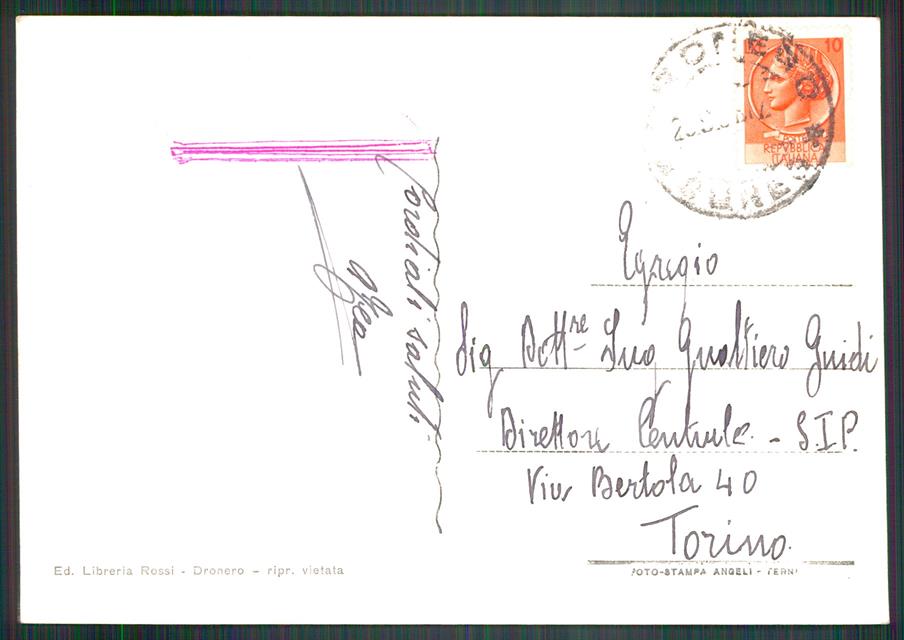 10
POSTE
REPVBBLICA
ITALIANA
Cordiali saluti.
Egregio
Sig Dott.re Ing Gualtiero Guidi
Direttore Centrale - S.I.P.
Via Bertola 40
Torino.
Ed. Libreria Rossi - Dronero - ripr. vietata
FOTO-STAMPA ANGELI - TERNI